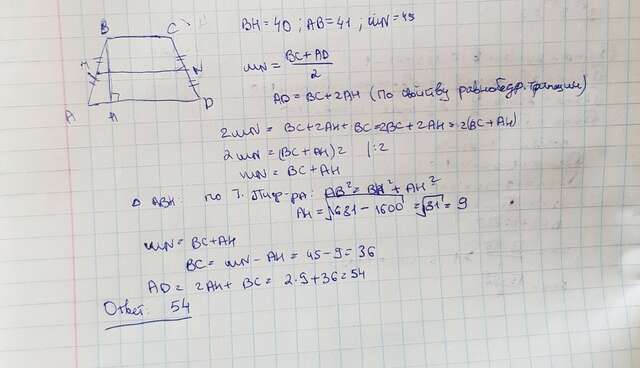 B C
BH = 40 ; AB = 41 ; MN = 45
M N
A H D
MN = BC + AD / 2
AD = BC + 2AH (по свойству равнобедр. трапеции)
2MN = BC + 2AH + BC = 2BC + 2AH = 2(BC + AH)
2MN = (BC + AH) 2 | : 2
MN = BC + AH
Δ ABH: по Т. Пифагора: AB² = BH² + AH²
AH = √1681 - 1600 = √81 = 9
MN = BC + AH
BC = MN - AH = 45 - 9 = 36
AD = 2AH + BC = 2 · 9 + 36 = 54
Ответ: 54